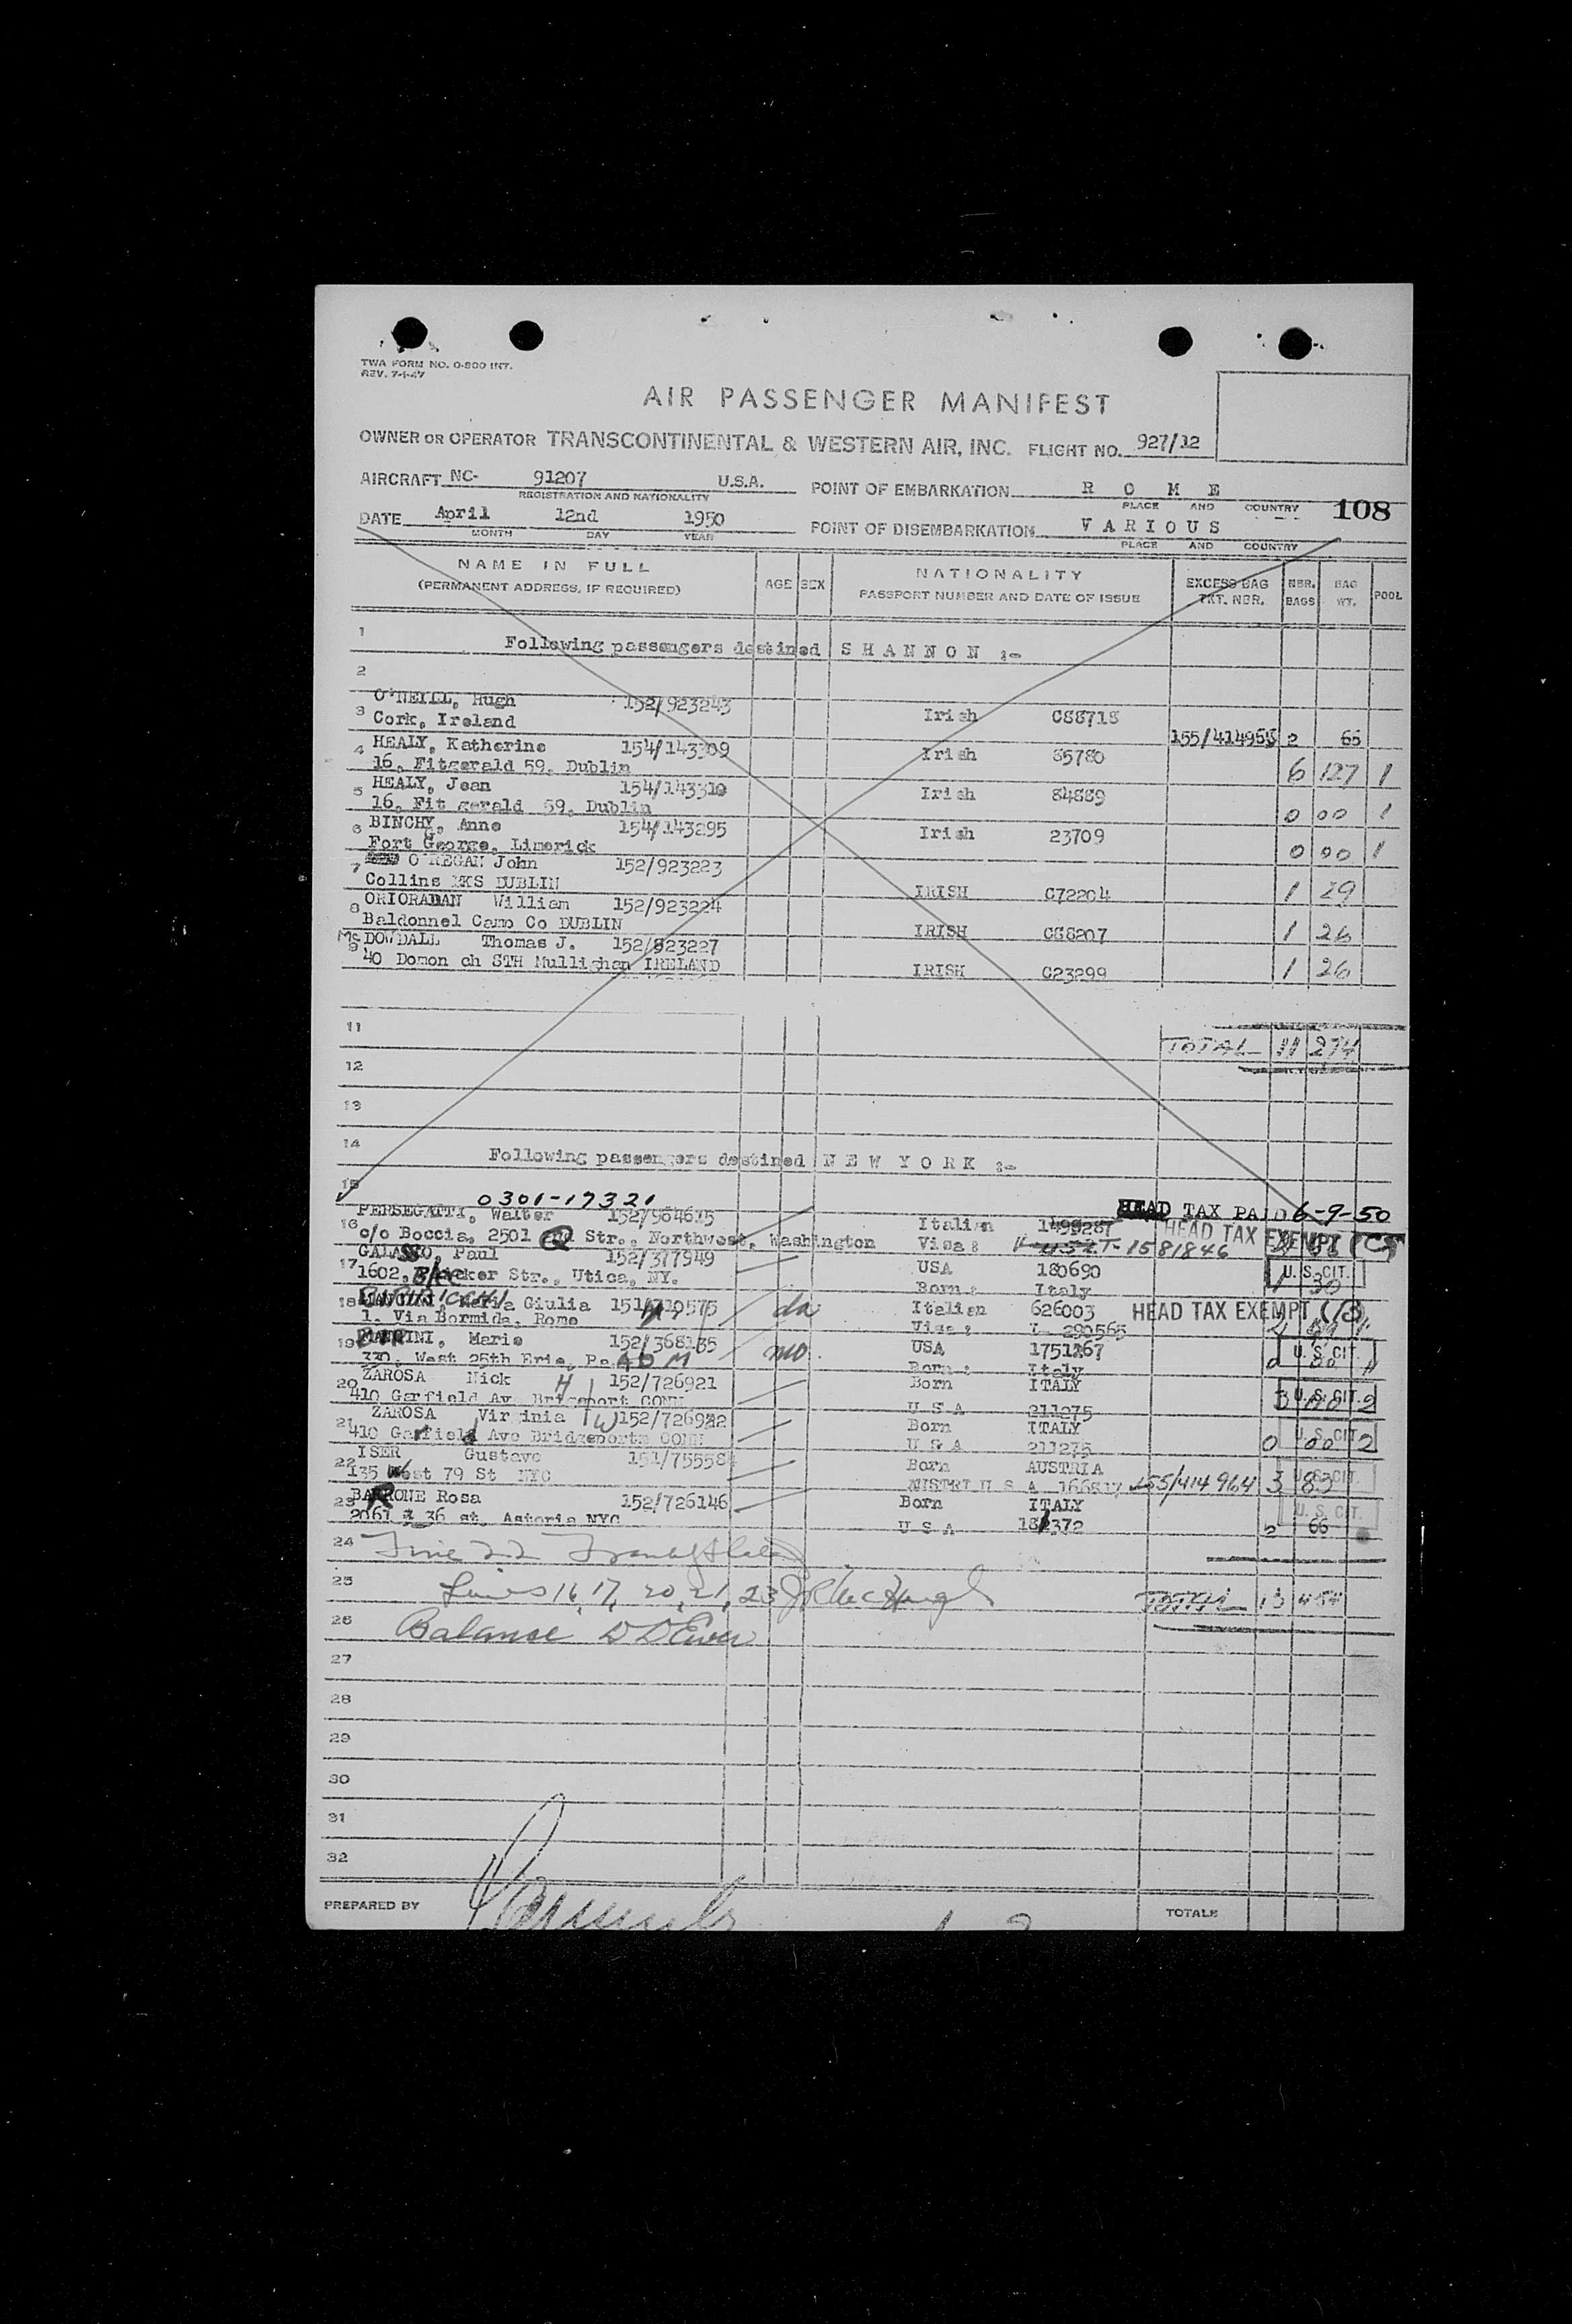 TWA FORM NO. 0-800 INT.
REV. 7-1-47
AIR PASSENGER MANIFEST
OWNER OR OPERATOR TRANSCONTINENTAL & WESTERN AIR, INC. FLIGHT NO. 927/12
AIRCRAFT NC- 91207 U.S.A. POINT OF EMBARKATION R O M E
REGISTRATION AND NATIONALITY PLACE AND COUNTRY 108
DATE April 12nd 1950 POINT OF DISEMBARKATION V A R I O U S
MONTH DAY YEAR PLACE AND COUNTRY
NAME IN FULL AGE SEX NATIONALITY EXCESS BAG NBR. BAG POOL
(PERMANENT ADDRESS, IF REQUIRED) PASSPORT NUMBER AND DATE OF ISSUE TKT. NBR. BAGS WT.
1
Following passengers destined S H A N N O N :-
2
O'NEILL, Hugh 152/923243 Irish
3 Cork, Ireland 2 65
4 HEALY, Katherine 154/143309 Irish 85780
16, Fitzgerald 59, Dublin 6 127 1
5 HEALY, Jean 154/143310 Irish 84889
16, Fit gerald 59, Dublin 0 00 1
6 BINCHY, Anne 154/143295 Irish 23709
Fort George, Limerick 0 00 1
7 O'REGAN John 152/923223
Collins BKS DUBLIN IRISH C72204 1 29
8 ORIORADAN William 152/923224
Baldonnel Camp Co DUBLIN IRISH C88207 1 26
9 Mc DOWDALL Thomas J. 152/923227
40 Domon ch STH Mullighan IRELAND IRISH C23299 1 26
11
TOTAL 11 274
12
13
14
Following passengers destined N E W Y O R K :-
15
0301-17321
PERSEGATTI, Walter 152/964615 Italian 1499287 HEAD TAX PAID 6-9-50
16 c/o Boccia, 2501 Q Str., Northwest, Washington Visa: 1581846 HEAD TAX EXEMPT
GALASSO, Paul 152/377949 USA 180690
17 1602, Str., Utica, NY. Born: Italy U. S. CIT. 1 30
18 Maria Giulia Italian 626003 HEAD TAX EXEMPT
1, Via Bormida, Rome da Visa: I- 290565
19 Marie 152/368135 USA 1751267 U. S. CIT.
330, West 25th Erie, Pa. mo. Born: Italy
20 ZAROSA Nick H 152/726921 Born ITALY U. S. CIT.
410 Garfield Av Bridgeport CONN U S A 211275 2
21 ZAROSA Virginia W 152/726922 Born ITALY U. S. CIT.
410 Garfield Ave Bridgeport CONN U S A 211275 0 00 2
22 ISER Gustave Born AUSTRIA U. S. CIT.
135 West 79 St NYC U S A 155/414964 3 83
23 BARRONE Rosa 152/726146 Born ITALY U. S. CIT.
2061 36 st. Astoria NYC U S A 2 66
24 Line 22
25 Lines 16, 17, 20, 21, 23 TOTAL 13
26 Balance
27
28
29
30
31
32
PREPARED BY TOTALS